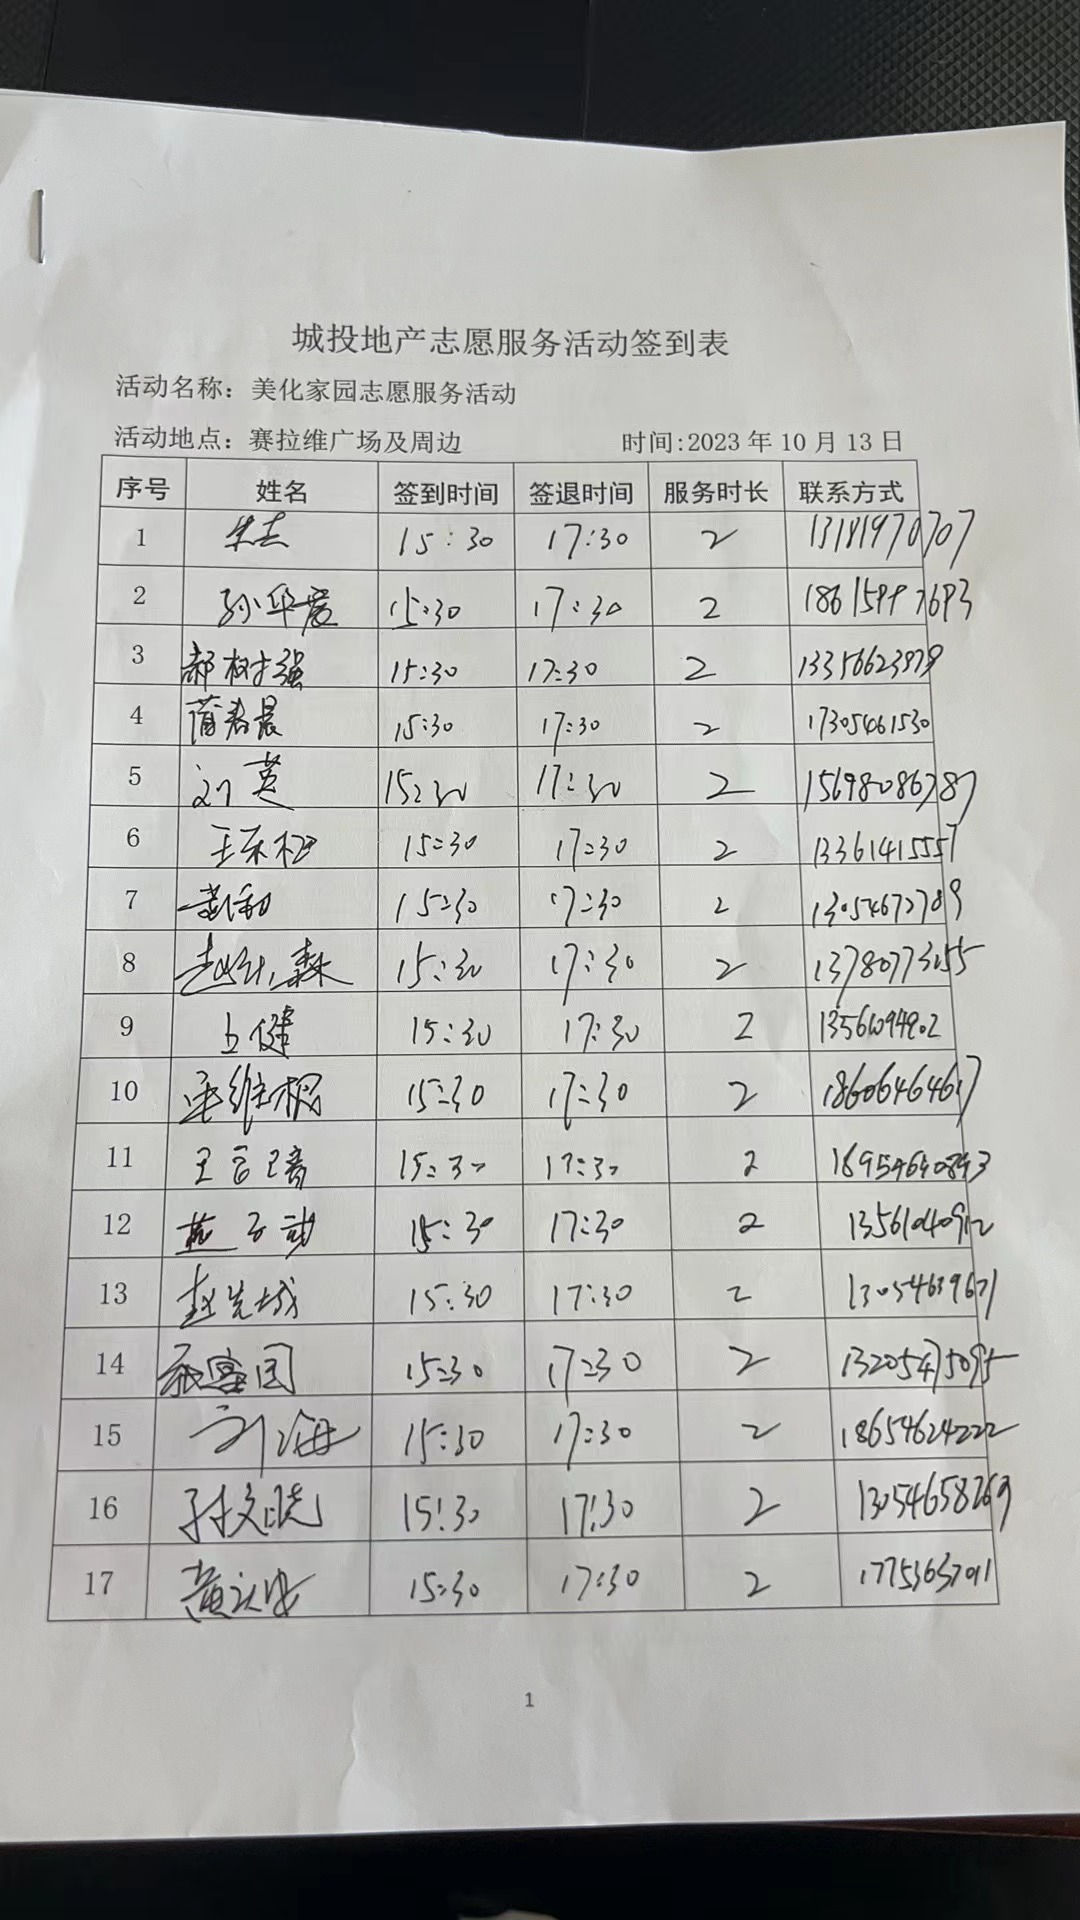 城投地产志愿服务活动签到表
活动名称：美化家园志愿服务活动
活动地点：赛拉维广场及周边 时间:2023年10月13日
序号 姓名 签到时间 签退时间 服务时长 联系方式
1 15:30 17:30 2 13181970707
2 孙华彦 15:30 17:30 2
3 郝树强 15:30 17:30 2 13356623979
4 蒲春晨 15:30 17:30 2 17305461530
5 刘英 15:30 17:30 2 15698086787
6 15:30 17:30 2 13361415557
7 15:30 17:30 2 13054672789
8 15:30 17:30 2 13780773155
9 15:30 17:30 2
10 15:30 17:30 2 18606464617
11 15:30 17:30 2 18954640893
12 15:30 17:30 2 13561040912
13 赵先城 15:30 17:30 2 13054639671
14 15:30 17:30 2 13205475095
15 刘海 15:30 17:30 2 18654624222
16 孙文晓 15:30 17:30 2 13054658269
17 15:30 17:30 2
1